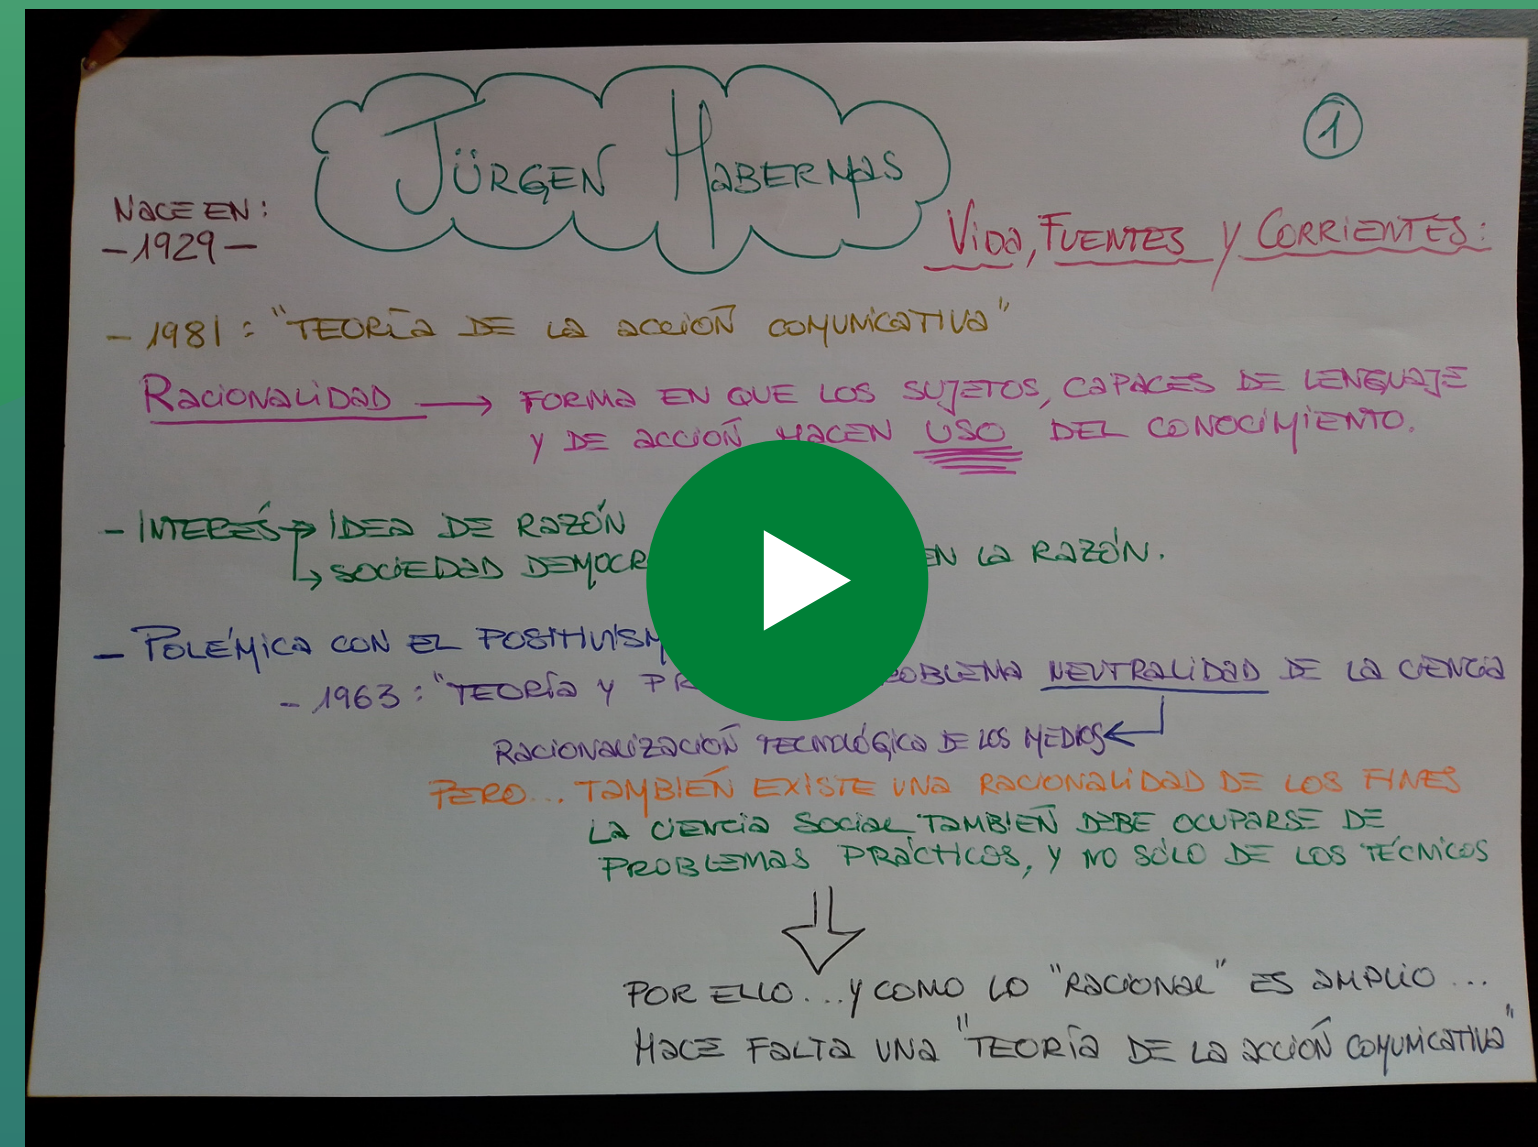 JÜRGEN HABERMAS
1
NACE EN:
-1929-
VIDA, FUENTES Y CORRIENTES:
- 1981: "TEORÍA DE LA ACCIÓN COMUNICATIVA"
RACIONALIDAD → FORMA EN QUE LOS SUJETOS, CAPACES DE LENGUAJE
Y DE ACCIÓN HACEN USO DEL CONOCIMIENTO.
- INTERÉS → IDEA DE RAZÓN
↳ SOCIEDAD EN LA RAZÓN.
- POLÉMICA CON EL
- 1963: "TEORÍA Y NEUTRALIDAD DE LA CIENCIA
RACIONALIZACIÓN TECNOLÓGICA DE LOS MEDIOS ←
PERO... TAMBIÉN EXISTE UNA RACIONALIDAD DE LOS FINES
LA CIENCIA SOCIAL TAMBIÉN DEBE OCUPARSE DE
PROBLEMAS PRÁCTICOS, Y NO SÓLO DE LOS TÉCNICOS
POR ELLO... Y COMO LO "RACIONAL" ES AMPLIO...
HACE FALTA UNA "TEORÍA DE LA ACCIÓN COMUNICATIVA"